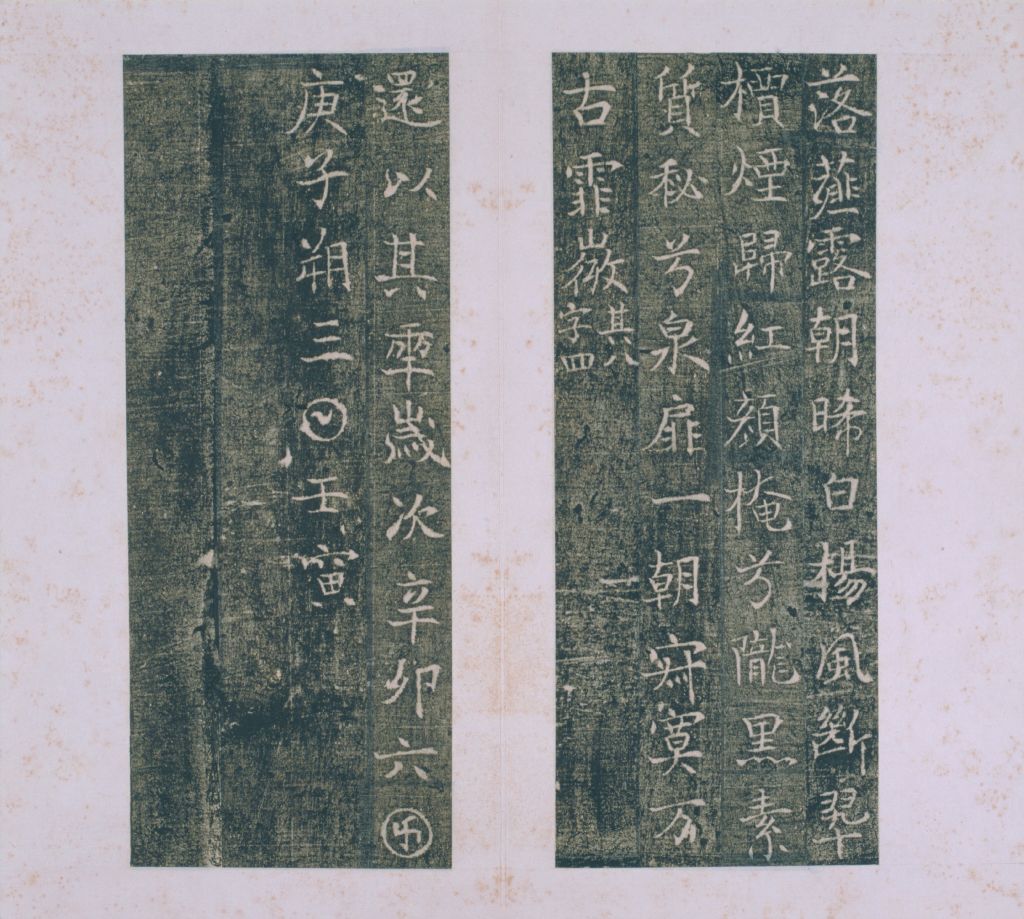 落薤露朝晞白楊風斷翠
檟煙歸紅顏掩兮隴黑素
質秘兮泉扉一朝寂寞万
古霏微其八字四
還以其𠡦歲次辛卯六
庚子朔三𡆠壬寅